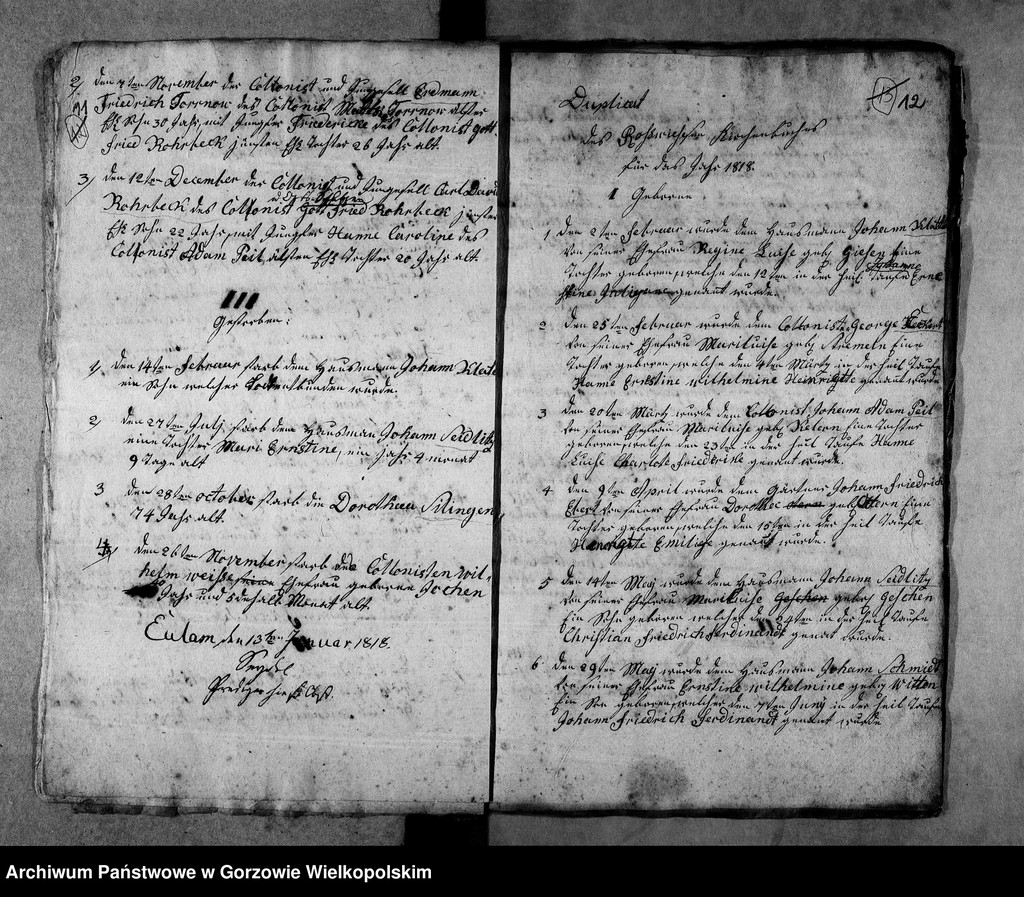 2, den 7ten November der Collonist und Junggesell Erdmann
Friedrich Torrnow des Collonist Torrnow
Ehl. Sohn 30 Jahr, mit Jungfer Friedericke des Collonist Gott
Fried Rohrbeck jünsten Ehl. Tochter 26 Jahr alt.
3, den 12ten December der Collonist und Junggesell Carl David
Rohrbeck des Collonist Gott Fried Rohrbeck
Ehl. Sohn 22 Jahr, mit Jungfer Hanne Caroline des
Collonist Adam Peil älsten Ehl. Tochter 20 Jahr alt
III
Gestorben:
1, den 14ten Februar starb dem Hausmann Johann
ein Sohn welcher wurde.
2, den 27ten July starb dem Hausman Johann Seidlitz
eine Tochter Mari Ernstine, ein Jahr 4 monat
9 Tage alt
3 den 28ten October starb die Dorothea Silingen
74 Jahr alt.
4, den 26ten November starb des Collonisten Wil-
helm weisse Ehefrau geborene Jochen
Jahr und Monat alt.
Eulam, den 13ten Januar 1818.
Seydel
Prediger
12
Duplicat
des Kirchenbuches
für das Jahr 1818.
I Geborene
1, den 2ten Februar wurde dem Hausmann Johann
von seiner Ehefrau Regine Luise geb. Giesen Eine
Tochter geboren welche den 12ten in der heil. Taufe
genant wurde.
2 den 25ten Februar wurde dem Collonist George
von seiner Ehefrau Mariluise geb. Eine
Tochter geboren welche den 4ten Martz in der heil Taufe
Hanne Ernstine wilhelmine Heinrigtte genant wurde
3 den 20ten Martz wurde dem Collonist Johann Adam Peil
von seiner Ehefrau Mariluise geb. Eine Tochter
geboren welche den 23ten in der heil Taufe Hanne
Luise Charlote Friedrike genant wurde.
4 den 9ten April wurde dem Gärtner Johann Friedrich
Ebert von seiner Ehefrau Dorothee geb. Eine
Tochter geboren welche den 15ten in der heil Taufe
Henrigtte Emilie genant wurde.
5 den 14ten Maj wurde dem Hausmann Johann Seidlitz
von seiner Ehefrau Mariluise geb. Geschen
Ein Sohn geboren welcher den 24ten in der heil Taufe
Christian Friedrich Ferdinandt genant wurde.
6 den 29ten Maj wurde dem Hausmann Johann Schmidt
von seiner Ehefrau Ernstine wilhelmine geb. Witten
Ein Son geboren welcher den 7ten Junj in der heil Taufe
Johann Friedrich Ferdinandt genant wurde
Archiwum Państwowe w Gorzowie Wielkopolskim